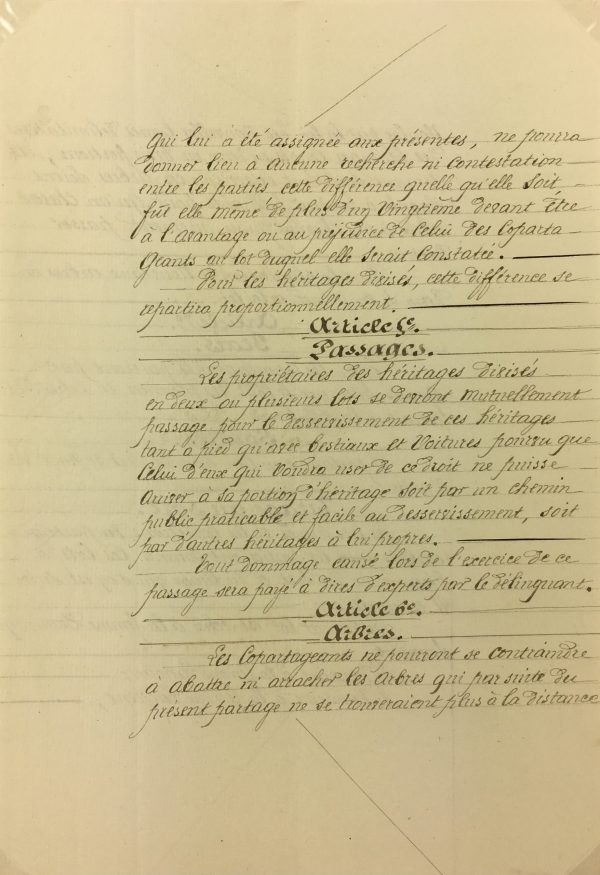 qui lui a été assignée aux présentes, ne pourra
donner lieu à aucune recherche ni contestation
entre les parties cette différence quelle qu'elle soit,
fut elle même de plus d'un vingtième devant être
à l'avantage ou au préjudice de celui des coparta
geants au lot duquel elle serait constatée.
Pour les héritages divisés, cette différence se
repartira proportionnellement.
Article 5e.
Passages.
Les propriétaires des héritages divisés
en deux ou plusieurs lots se devront mutuellement
passage pour le desservissement de ces héritages
tant à pied qu'avec bestiaux et voitures pourvu que
celui d'eux qui voudra user de ce droit ne puisse
arriver à sa portion d'héritage soit par un chemin
public praticable et facile au desservissement, soit
par d'autres héritages à lui propres.
Tout dommage causé lors de l'exercice de ce
passage sera payé à dires d'experts par le délinquant.
Article 6e.
Arbres.
Les copartageants ne pourront se contraindre
à abattre ni arracher les arbres qui par suite du
présent partage ne se trouveraient plus à la distance